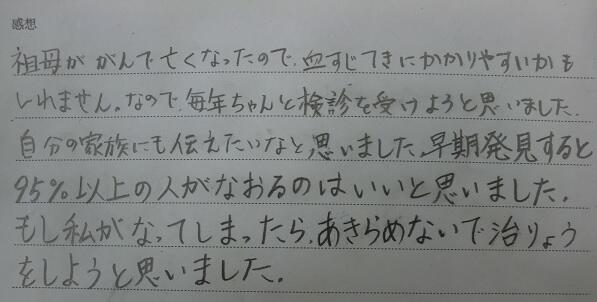 感想
祖母ががんで亡くなったので、血すじてきにかかりやすいかも
しれません。なので、毎年ちゃんと検診を受けようと思いました。
自分の家族にも伝えたいなと思いました。早期発見すると
95%以上の人がなおるのはいいと思いました。
もし私がなってしまったら、あきらめないで治りょう
をしようと思いました。